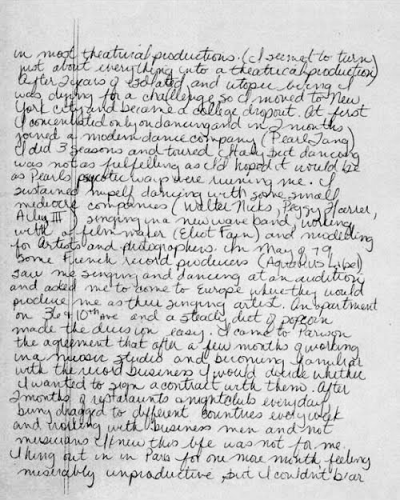 in most theatrical productions. (I seemed to turn
just about everything into a theatrical production)
After 2 years of isolated and utopic being I
was dying for a challenge so I moved to New
York City and became a college dropout. At first
I concentrated only on dancing and in 2 months
joined a modern dance company (Pearl Lang)
I did 3 seasons and toured Italy but dancing
was not as fulfelling as I'd hoped it would be
as Pearls psycotic warp were ruining me. I
sustained myself dancing with some small
mediocre companies (Walter Nicks, Peggy Harrer,
Ailey III) singing in a new wave band, working
with a film maker (Eliot) and modelling
for artists and photographers. In May of 79
some French record producers (Aquarius Label)
saw me singing and dancing at an audition
and asked me to come to Europe where they would
produce me as their singing artist. An apartment
on 36 & 10th ave and a steady diet of popcorn
made the decision easy. I came to Paris on
the agreement that after a few months of working
in a music studio and becoming familiar
with the record business I would decide whether
I wanted to sign a contract with them. After
2 months of restaurants & nightclubs everyday
being dragged to different countries every week
and working with business men and not
musicians I knew this life was not for me.
I hung out in in Paris for one more month feeling
miserably unproductive, but I couldn't bear